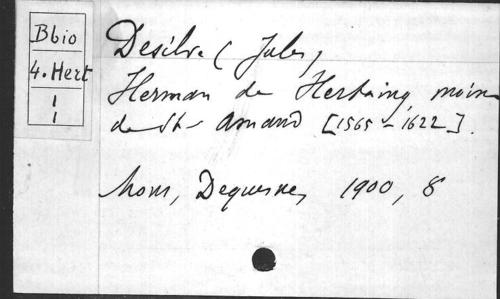 Bbio
4. Hert
1
1
Desilve (Jules)
Herman de Hertaing, moine
de St Amand [1565-1622].
Mons, Dequesne, 1900, 8